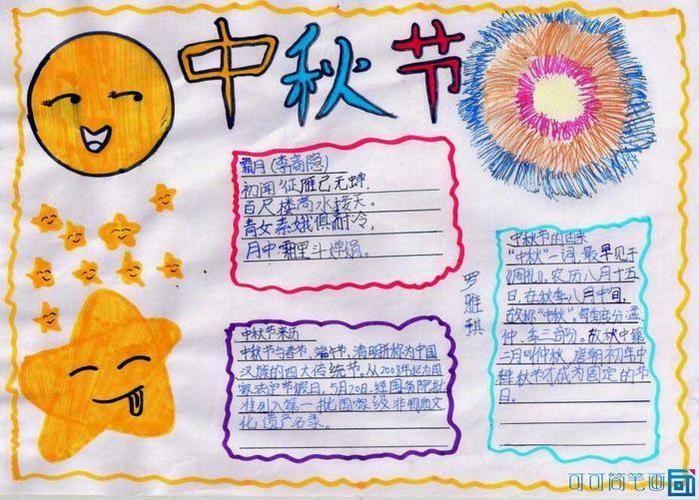 中秋节
霜月(李商隐)
初闻征雁已无蝉,
百尺楼高水接天。
青女素娥俱耐冷,
月中霜里斗婵娟。
中秋节的由来
"中秋"一词,最早见于
《周礼》,农历八月十五
日,在秋季八月中间,
故称"中秋",每季度分孟
仲,季三部分。故秋中第
二月叫仲秋,唐朝初年中
秋节才成为固定的节
日。
罗雅琪
中秋节来历
中秋节与春节,端午节,清明折称为中国
汉族的四大传统节。从2008年起为国
家法定节假日。5月20日,经国务院批
准列入第一批国家级非物质文
化遗产名录。
可可简笔画